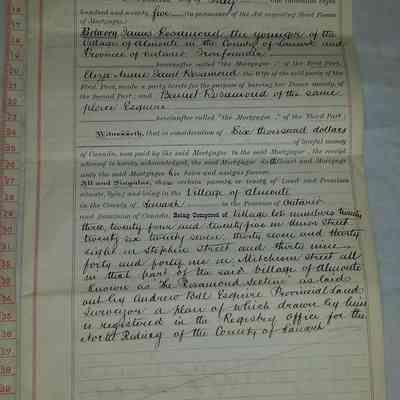 hundred and seventy five (in pursuance of the Act respecting Short Forms
of Mortgages)
Between James Rosamond the younger of the
Village of Almonte in the County of Lanark and
Province of Ontario
hereinafter called "the Mortgagor" of the First Part,
Rosamond the Wife of the said party of the
First Part, made a party hereto for the purpose of barring her Dower merely, of
the Second Part; and Rosamond of the same
place Esquire
hereinafter called "the Mortgagee" of the Third Part;
Witnesseth, that in consideration of Six thousand dollars
of lawful money
of Canada, now paid by the said Mortgagee to the said Mortgagor, the receipt
whereof is hereby acknowledged, the said Mortgagor doth Grant and Mortgage
unto the said Mortgagee his heirs and assigns forever
All and Singular, those certain parcels or tracts of Land and Premises
situate, lying and being in the Village of Almonte
in the County of Lanark in the Province of Ontario
and Dominion of Canada. Being Composed of Village lot numbers twenty
three, twenty four and twenty five in Union Street
twenty six twenty seven, thirty seven and thirty
eight in Stephen Street and thirty nine
forty and forty one in Mitcheson Street all
in that part of the said Village of Almonte
known as the Rosamond Section as laid
out by Andrew Bell Esquire Provincial Land
Surveyor a plan of which drawn by him
is registered in the Registry Office for the
North Riding of the County of Lanark
16
19
20
21
22
23
24
25
26
27
28
29
30
31
32
33
34
35
36
37
38